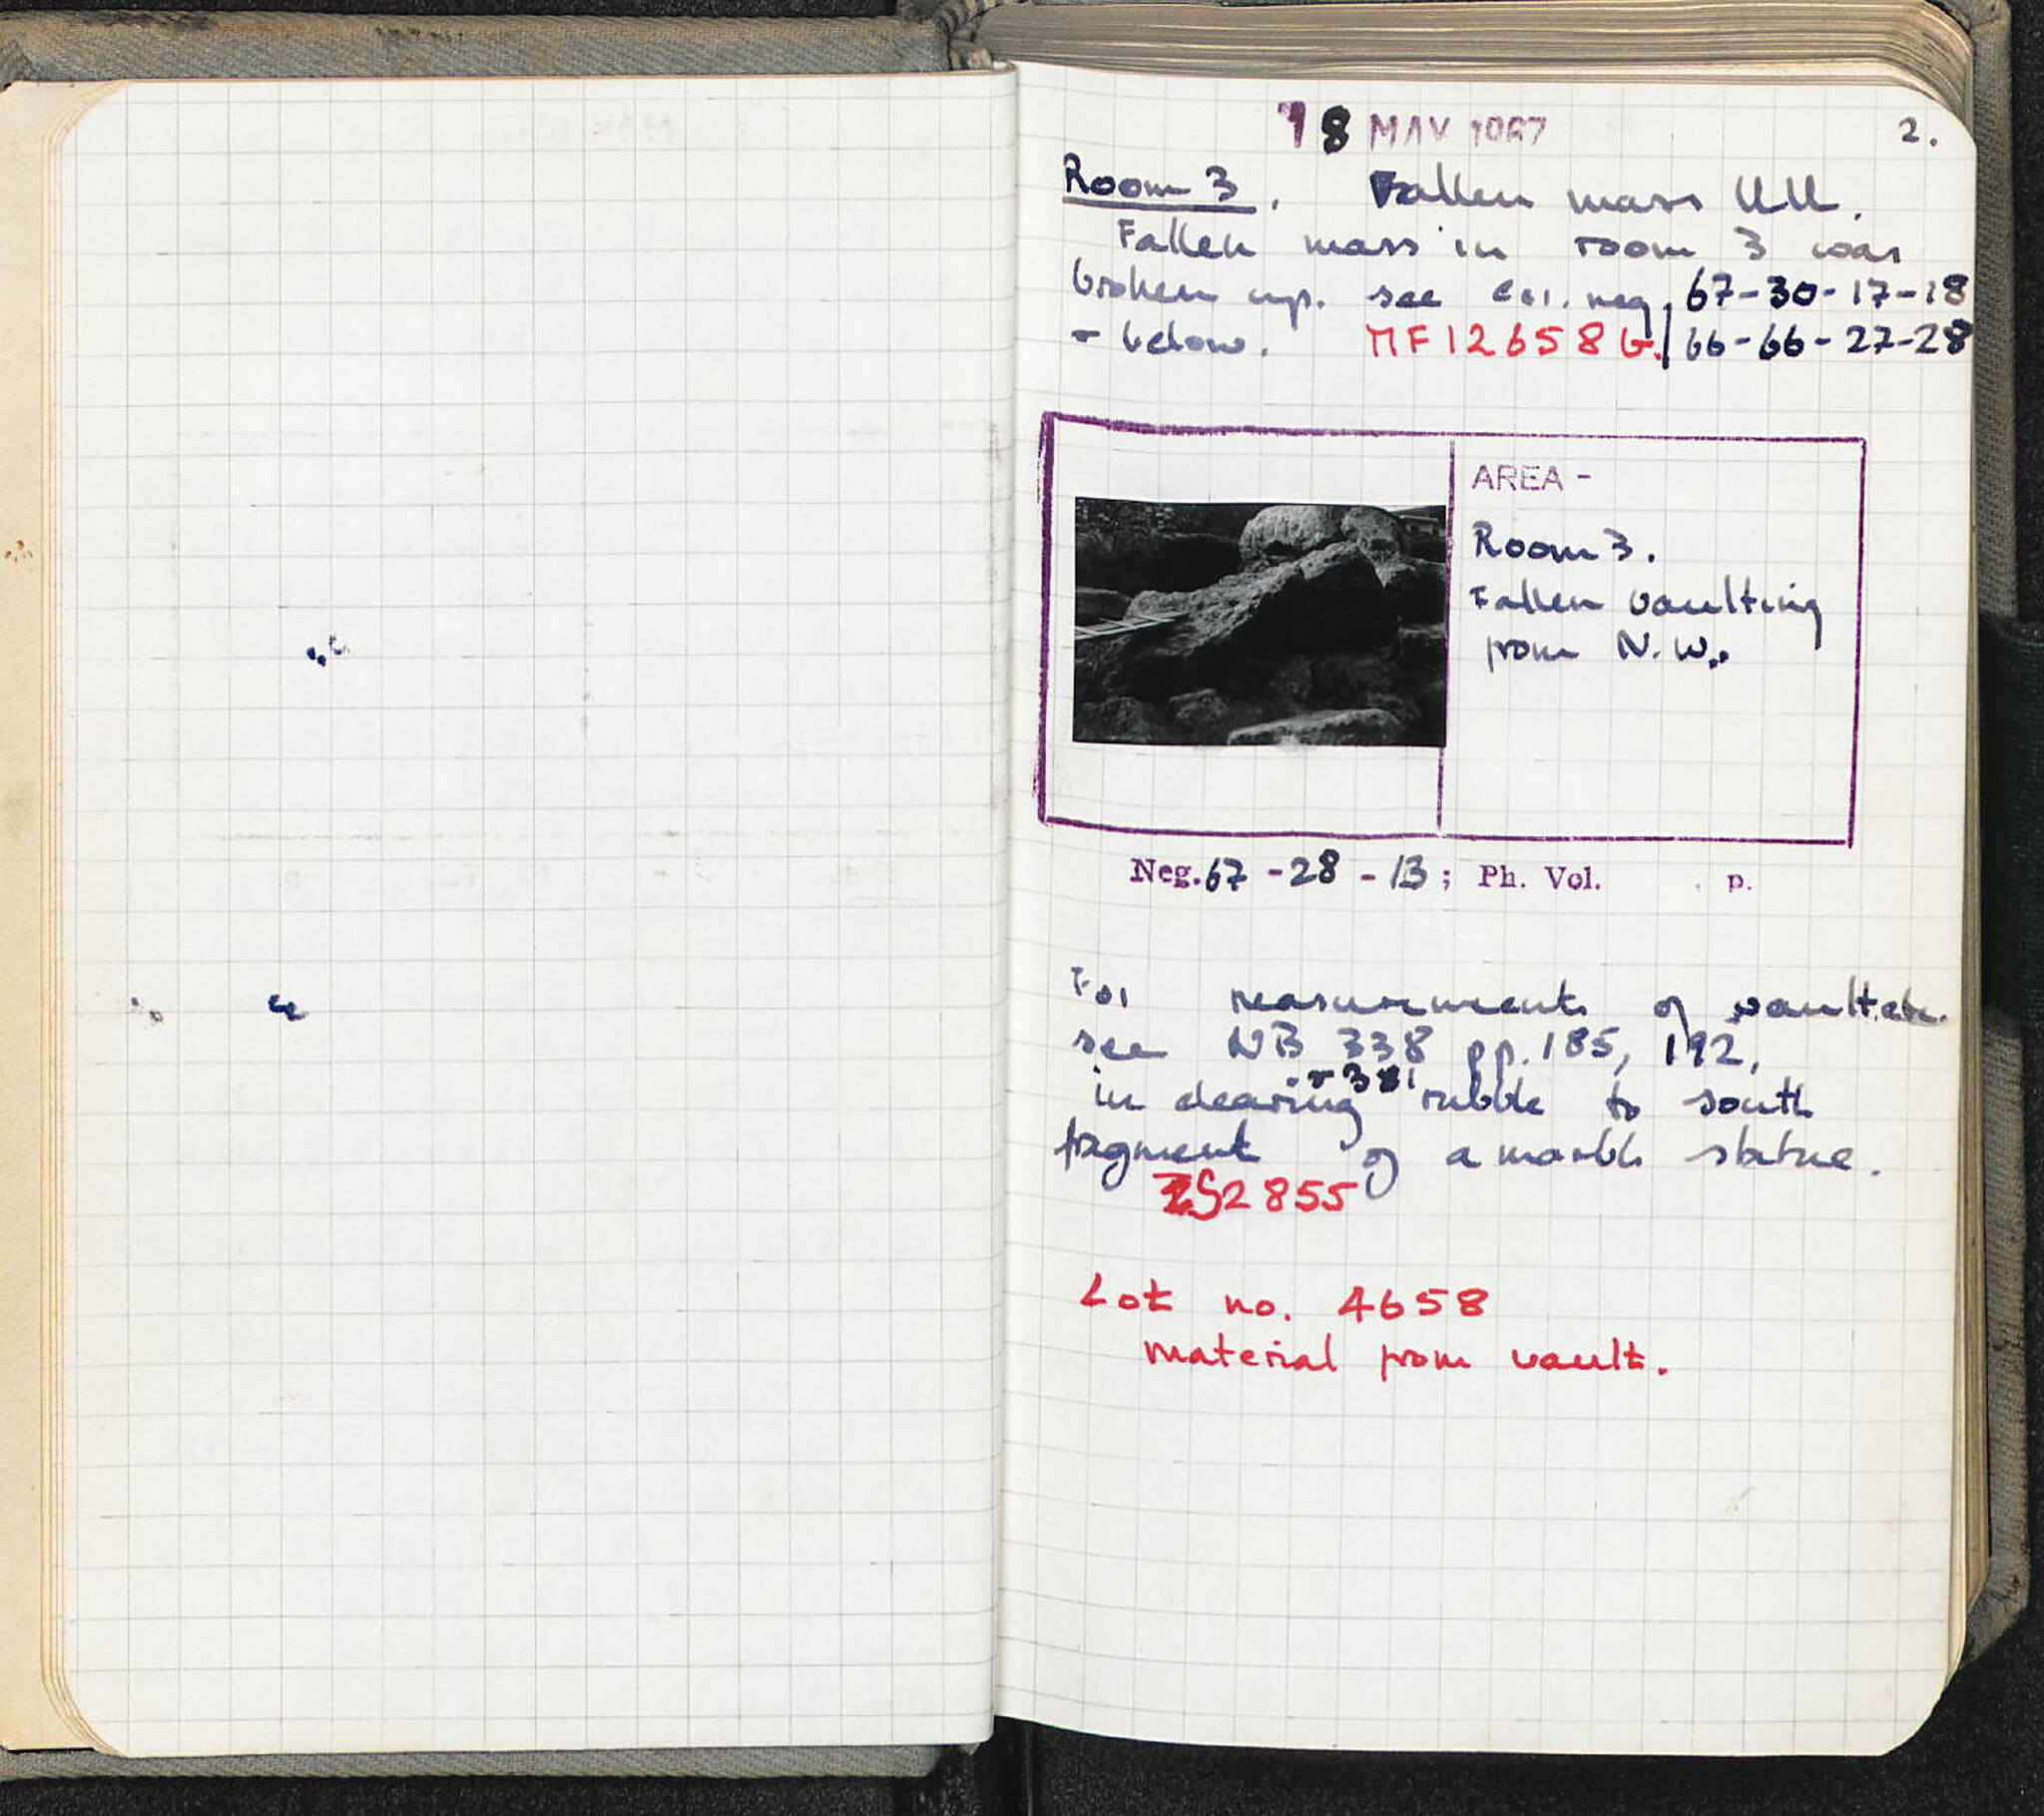 18 MAY 1967
2.
Room 3. Fallen mass UU.
Fallen mass in room 3 was
broken up. see col. neg. 67-30-17-18
+ below. MF12658 b. / 66-66-27-28
AREA -
Room 3.
Fallen vaulting
from N.W.
Neg. 67 - 28 - 13 ; Ph. Vol. p.
For measurements of vault etc.
see NB 338 pp. 185, 192,
in clearing rubble to south
fragment of a marble statue.
S2855
Lot no. 4658
material from vault.